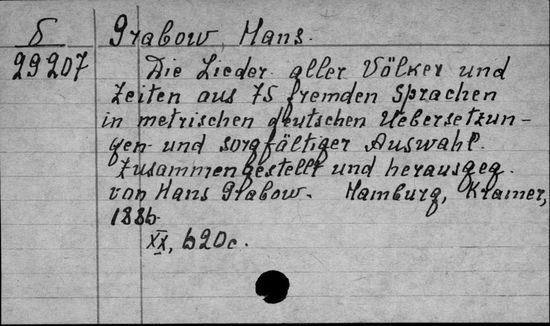 Б
29207
Grabow, Hans.
Die Lieder aller Völker und
Zeiten aus 75 fremden Sprachen
in metrischen deutschen Uebersetzun-
gen und sorgfältiger Auswahl.
Zusammengestellt und herausgeg.
von Hans Grabow. Hamburg, Kramer,
1886.
XX, 620 c.